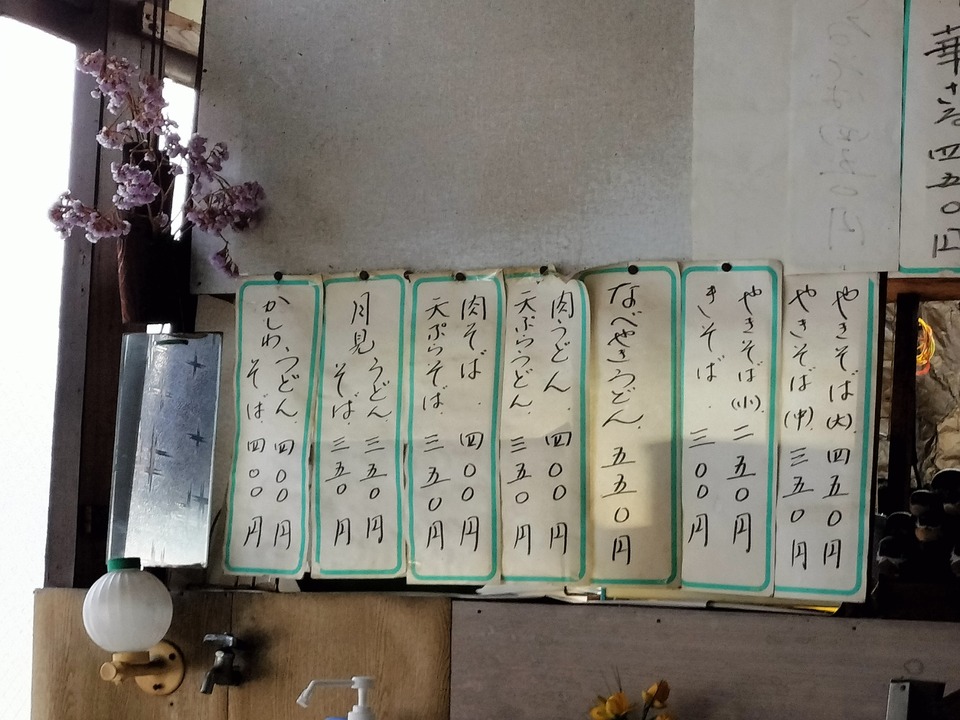 やきそば(大) 四五〇円
やきそば(中) 三五〇円
やきそば(小) 二五〇円
きそば 三〇〇円
なべやきうどん 五五〇円
肉うどん 四〇〇円
天ぷらうどん 三五〇円
肉そば 四〇〇円
天ぷらそば 三五〇円
月見 うどん 三五〇円
そば 三五〇円
かしわ うどん 四〇〇円
そば 四〇〇円